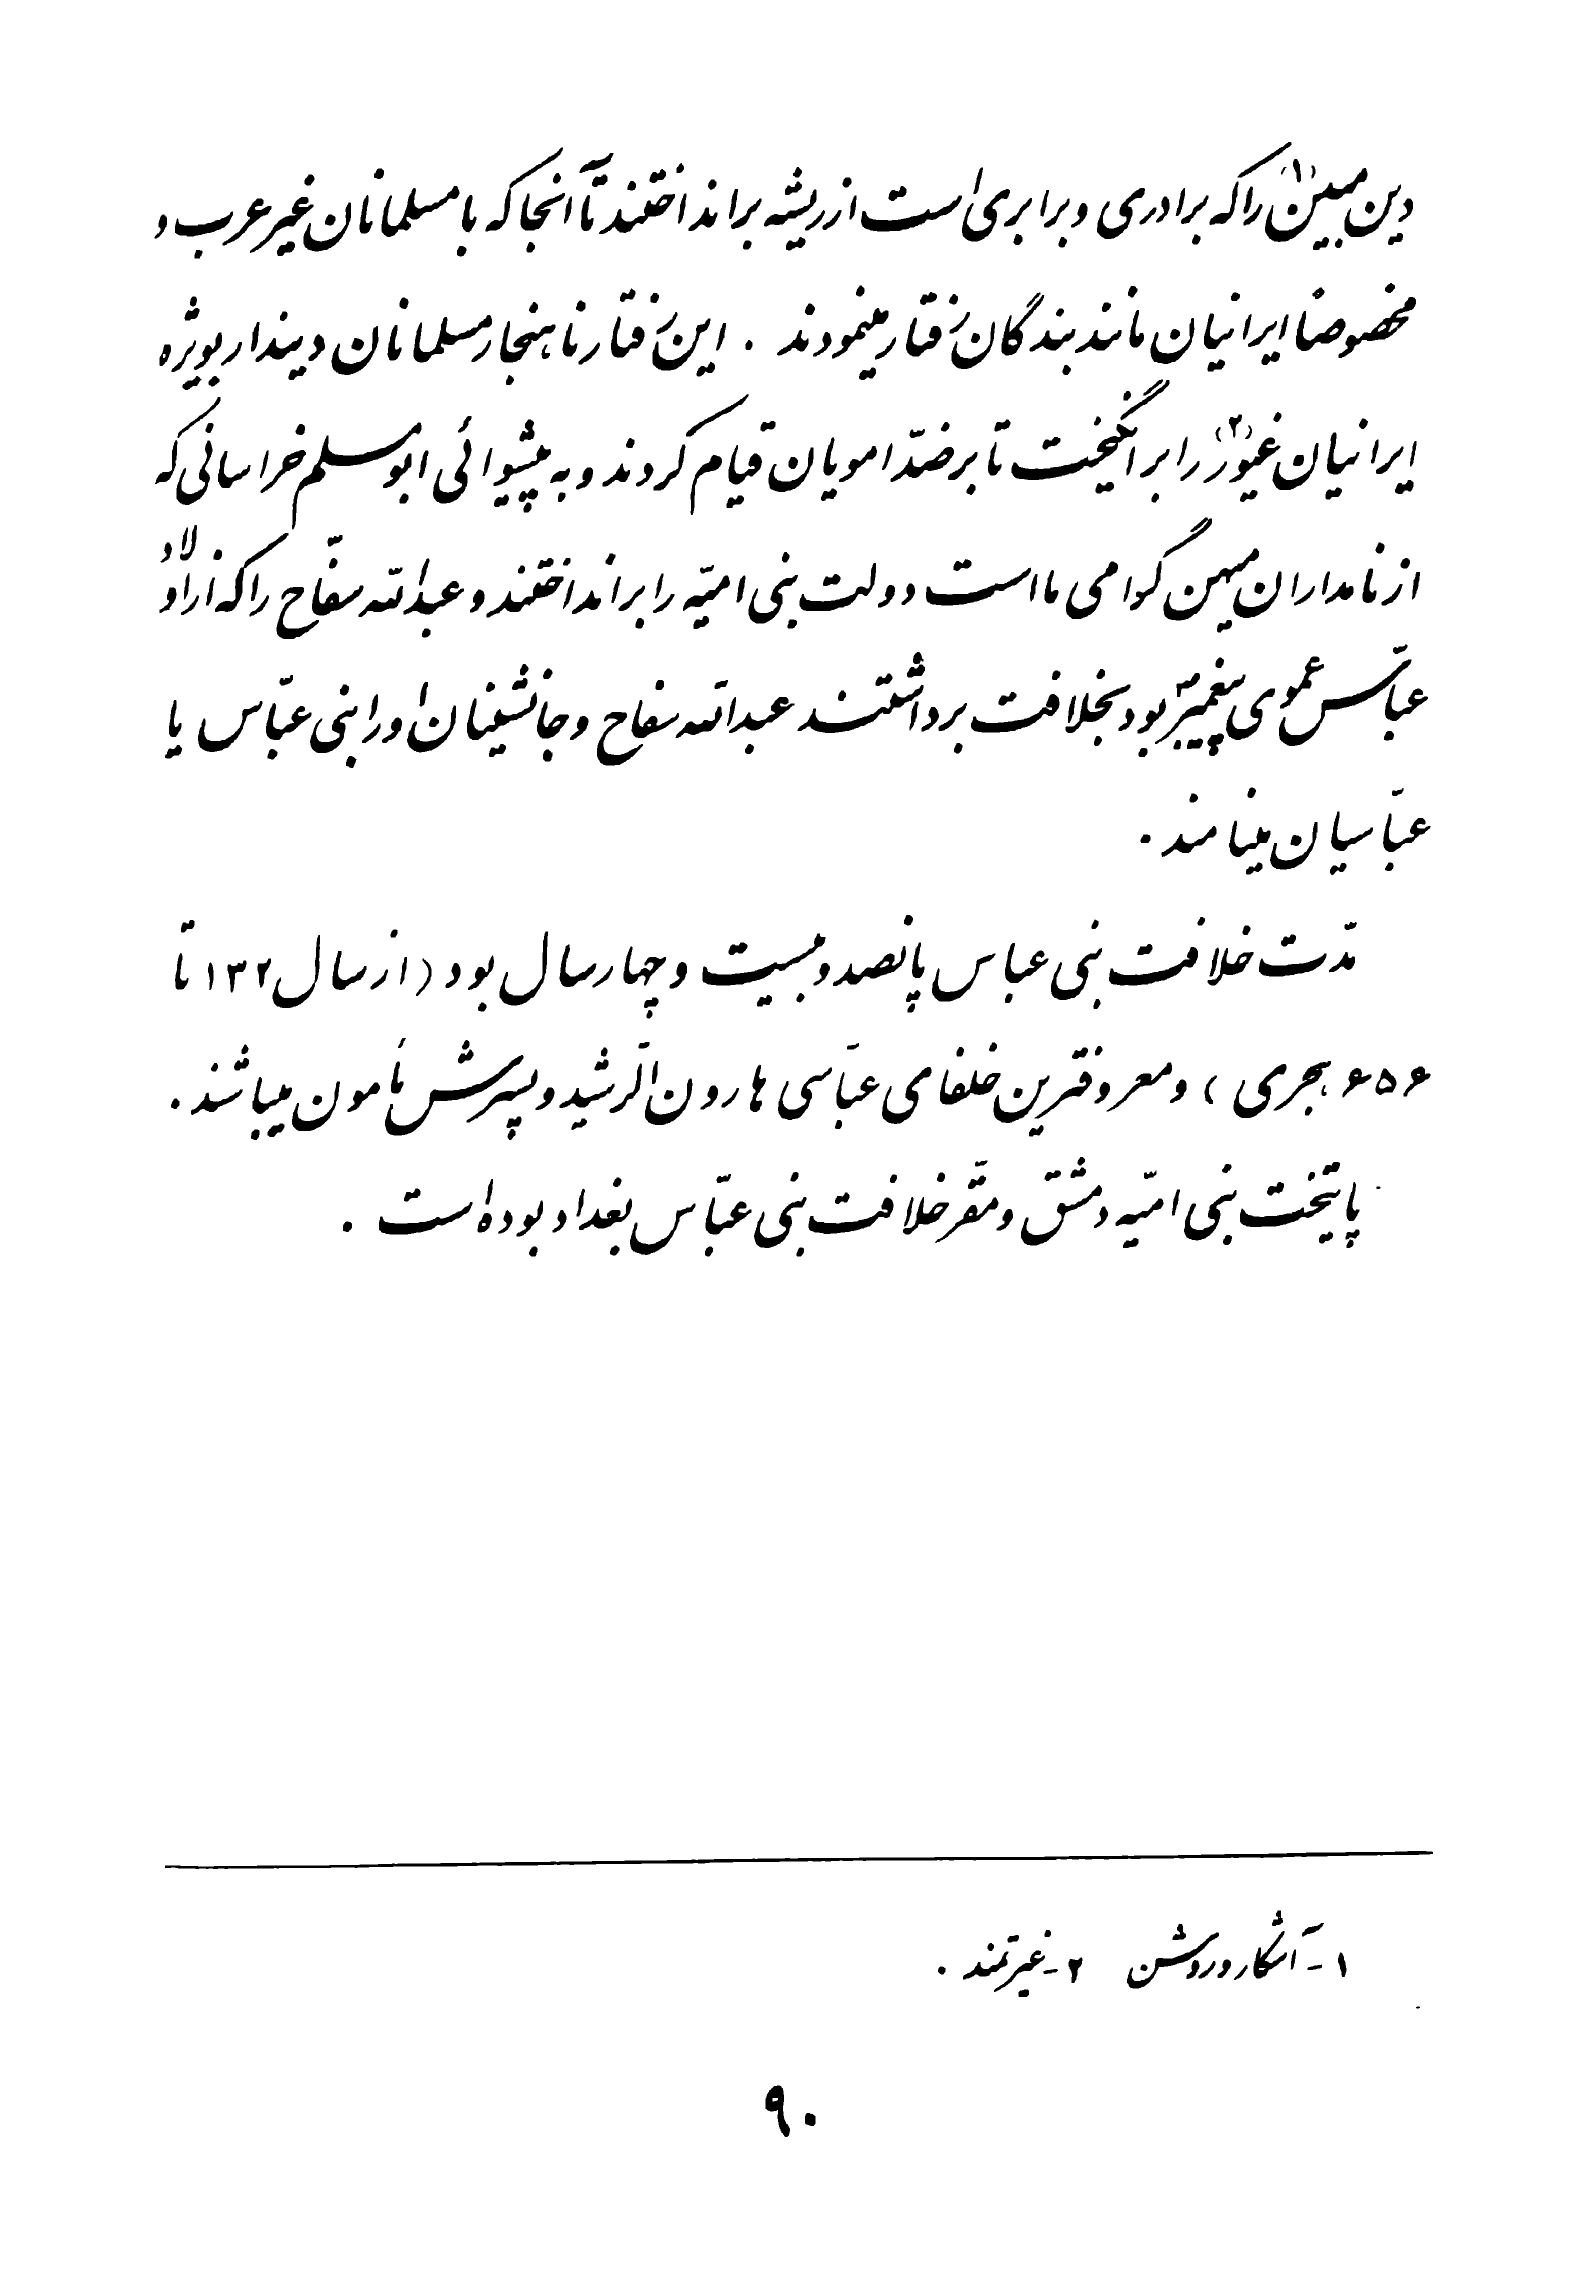 دین مبین(۱) را که برادری و برابری است از ریشه برانداختند تا آنجا که با مسلمانان غیر عرب و
مخصوصاً ایرانیان مانند بندگان رفتار مینمودند . این رفتار ناهنجار مسلمانان دیندار بویژه
ایرانیان غیور(۲) را برانگیخت تا بر ضدّ امویان قیام کردند و به پیشوائی ابومسلم خراسانی که
از نامداران میهن گرامی ما است دولت بنی امیّه را برانداختند و عبدالله سفّاح را که از اولاد
عبّاس عموی پیغمبر بود بخلافت برداشتند عبدالله سفاح و جانشینان او را بنی عبّاس یا
عبّاسیان مینامند .
مدّت خلافت بنی عباس پانصد و بیست و چهار سال بود (از سال ۱۳۲ تا
۶۵۶ هجری) و معروفترین خلفای عبّاسی هارون الرّشید و پسرش مأمون میباشند .
پایتخت بنی امیّه دمشق و مقّر خلافت بنی عبّاس بغداد بوده است .
۱ - آشکار و روشن ۲ - غیرتمند .
۹۰